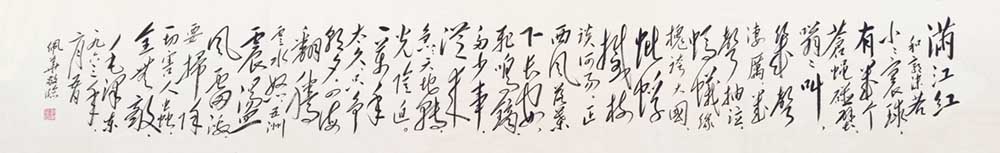 满江红
和郭沫若
小小寰球,
有几个
苍蝇碰壁
嗡嗡叫,
几声
凄厉几
声抽泣
蚂蚁缘
槐夸大国
蚍蜉
撼树
谈何易正
西风落叶
下长安,
飞鸣镝
多少事,
从来
急天地转,
光阴迫。
一万年
太久只争
朝夕四海
翻腾
云水怒五洲
震荡
风雷激
要扫除
一切害人虫
全无敌
毛泽东
一九六三年,
一月九日
佩华敬临